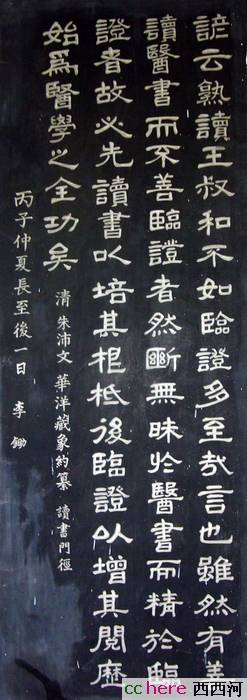 諺云熟讀王叔和不如臨證多至哉言也雖然有善
讀醫書而不善臨證者然斷無昧於醫書而精於臨
證者故必先讀書以培其根柢後臨證以增其閱歷
始爲醫學之全功矣
清 朱沛文 華洋藏象約纂 讀書門徑
丙子仲夏長至後一日 李鋤
cchere 西西河